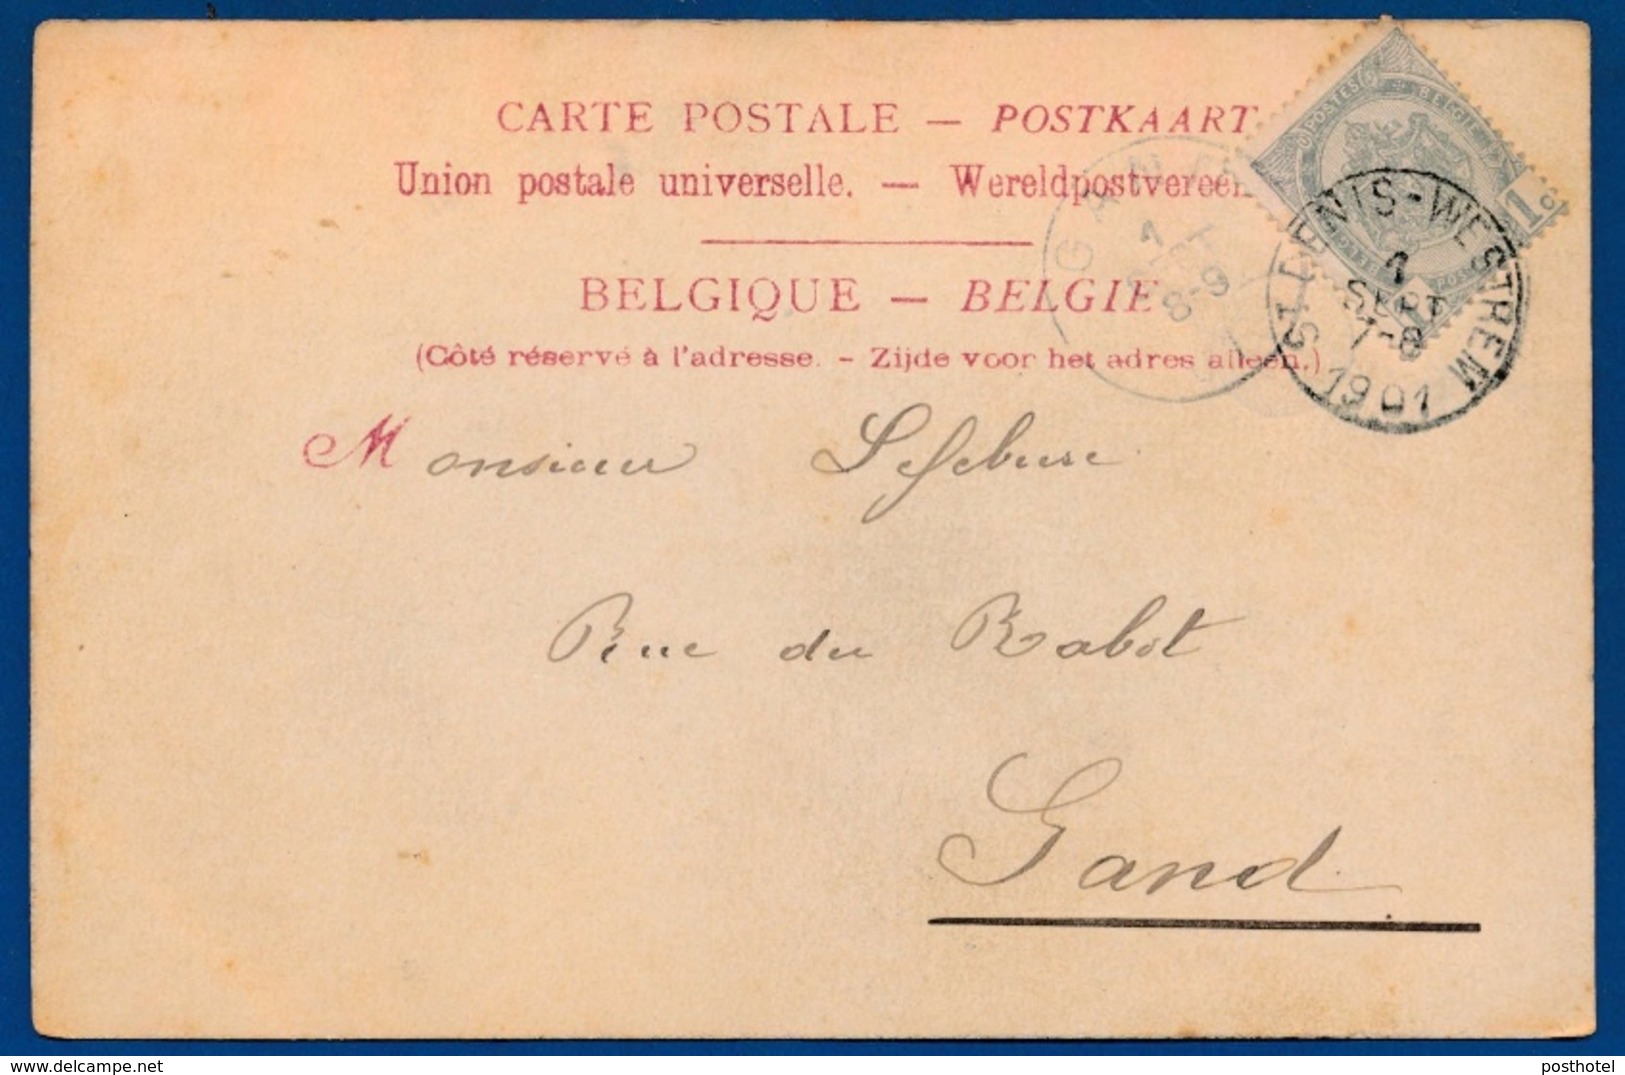 CARTE POSTALE — POSTKAART
Union postale universelle. — Wereldpostvereen
BELGIQUE — BELGIE
(Côté réservé à l'adresse. - Zijde voor het adres alleen.)
POSTES BELGIE
1 c
ST DENIS-WESTREM
1
SEPT
7-8
1901
GAND
1
8-9
Monsieur Lefebure
Rue du Rabot
Gand
www.delcampe.net
posthotel